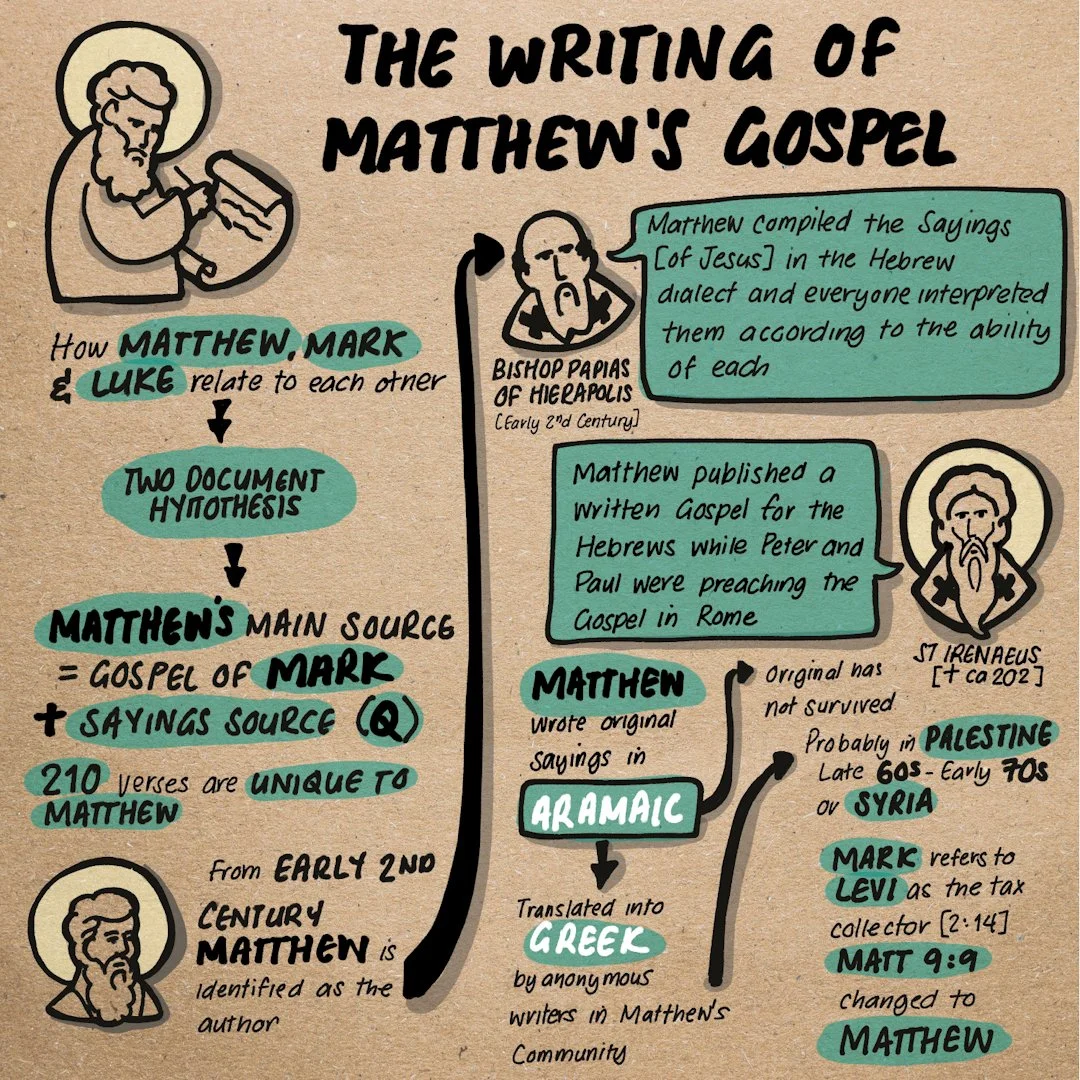 THE WRITING OF
MATTHEW'S GOSPEL
How MATTHEW, MARK
& LUKE relate to each other
TWO DOCUMENT
HYPOTHESIS
MATTHEW'S MAIN SOURCE
= GOSPEL OF MARK
+ SAYINGS SOURCE (Q)
210 verses are UNIQUE TO
MATTHEW
From EARLY 2ND
CENTURY
MATTHEW is
identified as the
author
BISHOP PAPIAS
OF HIERAPOLIS
[Early 2nd Century]
Matthew compiled the Sayings
[of Jesus] in the Hebrew
dialect and everyone interpreted
them according to the ability
of each
Matthew published a
written Gospel for the
Hebrews while Peter and
Paul were preaching the
Gospel in Rome
ST IRENAEUS
[† ca 202]
MATTHEW
wrote original
sayings in
ARAMAIC
Original has
not survived
Translated into
GREEK
by anonymous
writers in Matthew's
Community
Probably in PALESTINE
Late 60s - Early 70s
or SYRIA
MARK refers to
LEVI as the tax
collector [2:14]
MATT 9:9
changed to
MATTHEW